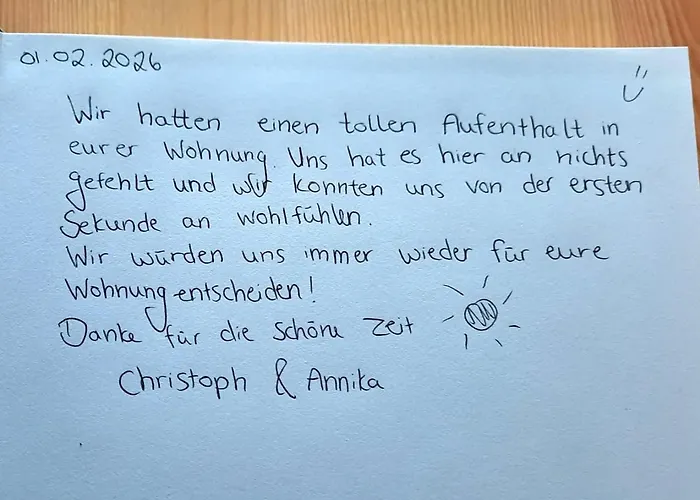 01.02.2026
Wir hatten einen tollen Aufenthalt in
eurer Wohnung. Uns hat es hier an nichts
gefehlt und wir konnten uns von der ersten
Sekunde an wohlfühlen.
Wir würden uns immer wieder für eure
Wohnung entscheiden!
Danke für die schöne Zeit
Christoph & Annika